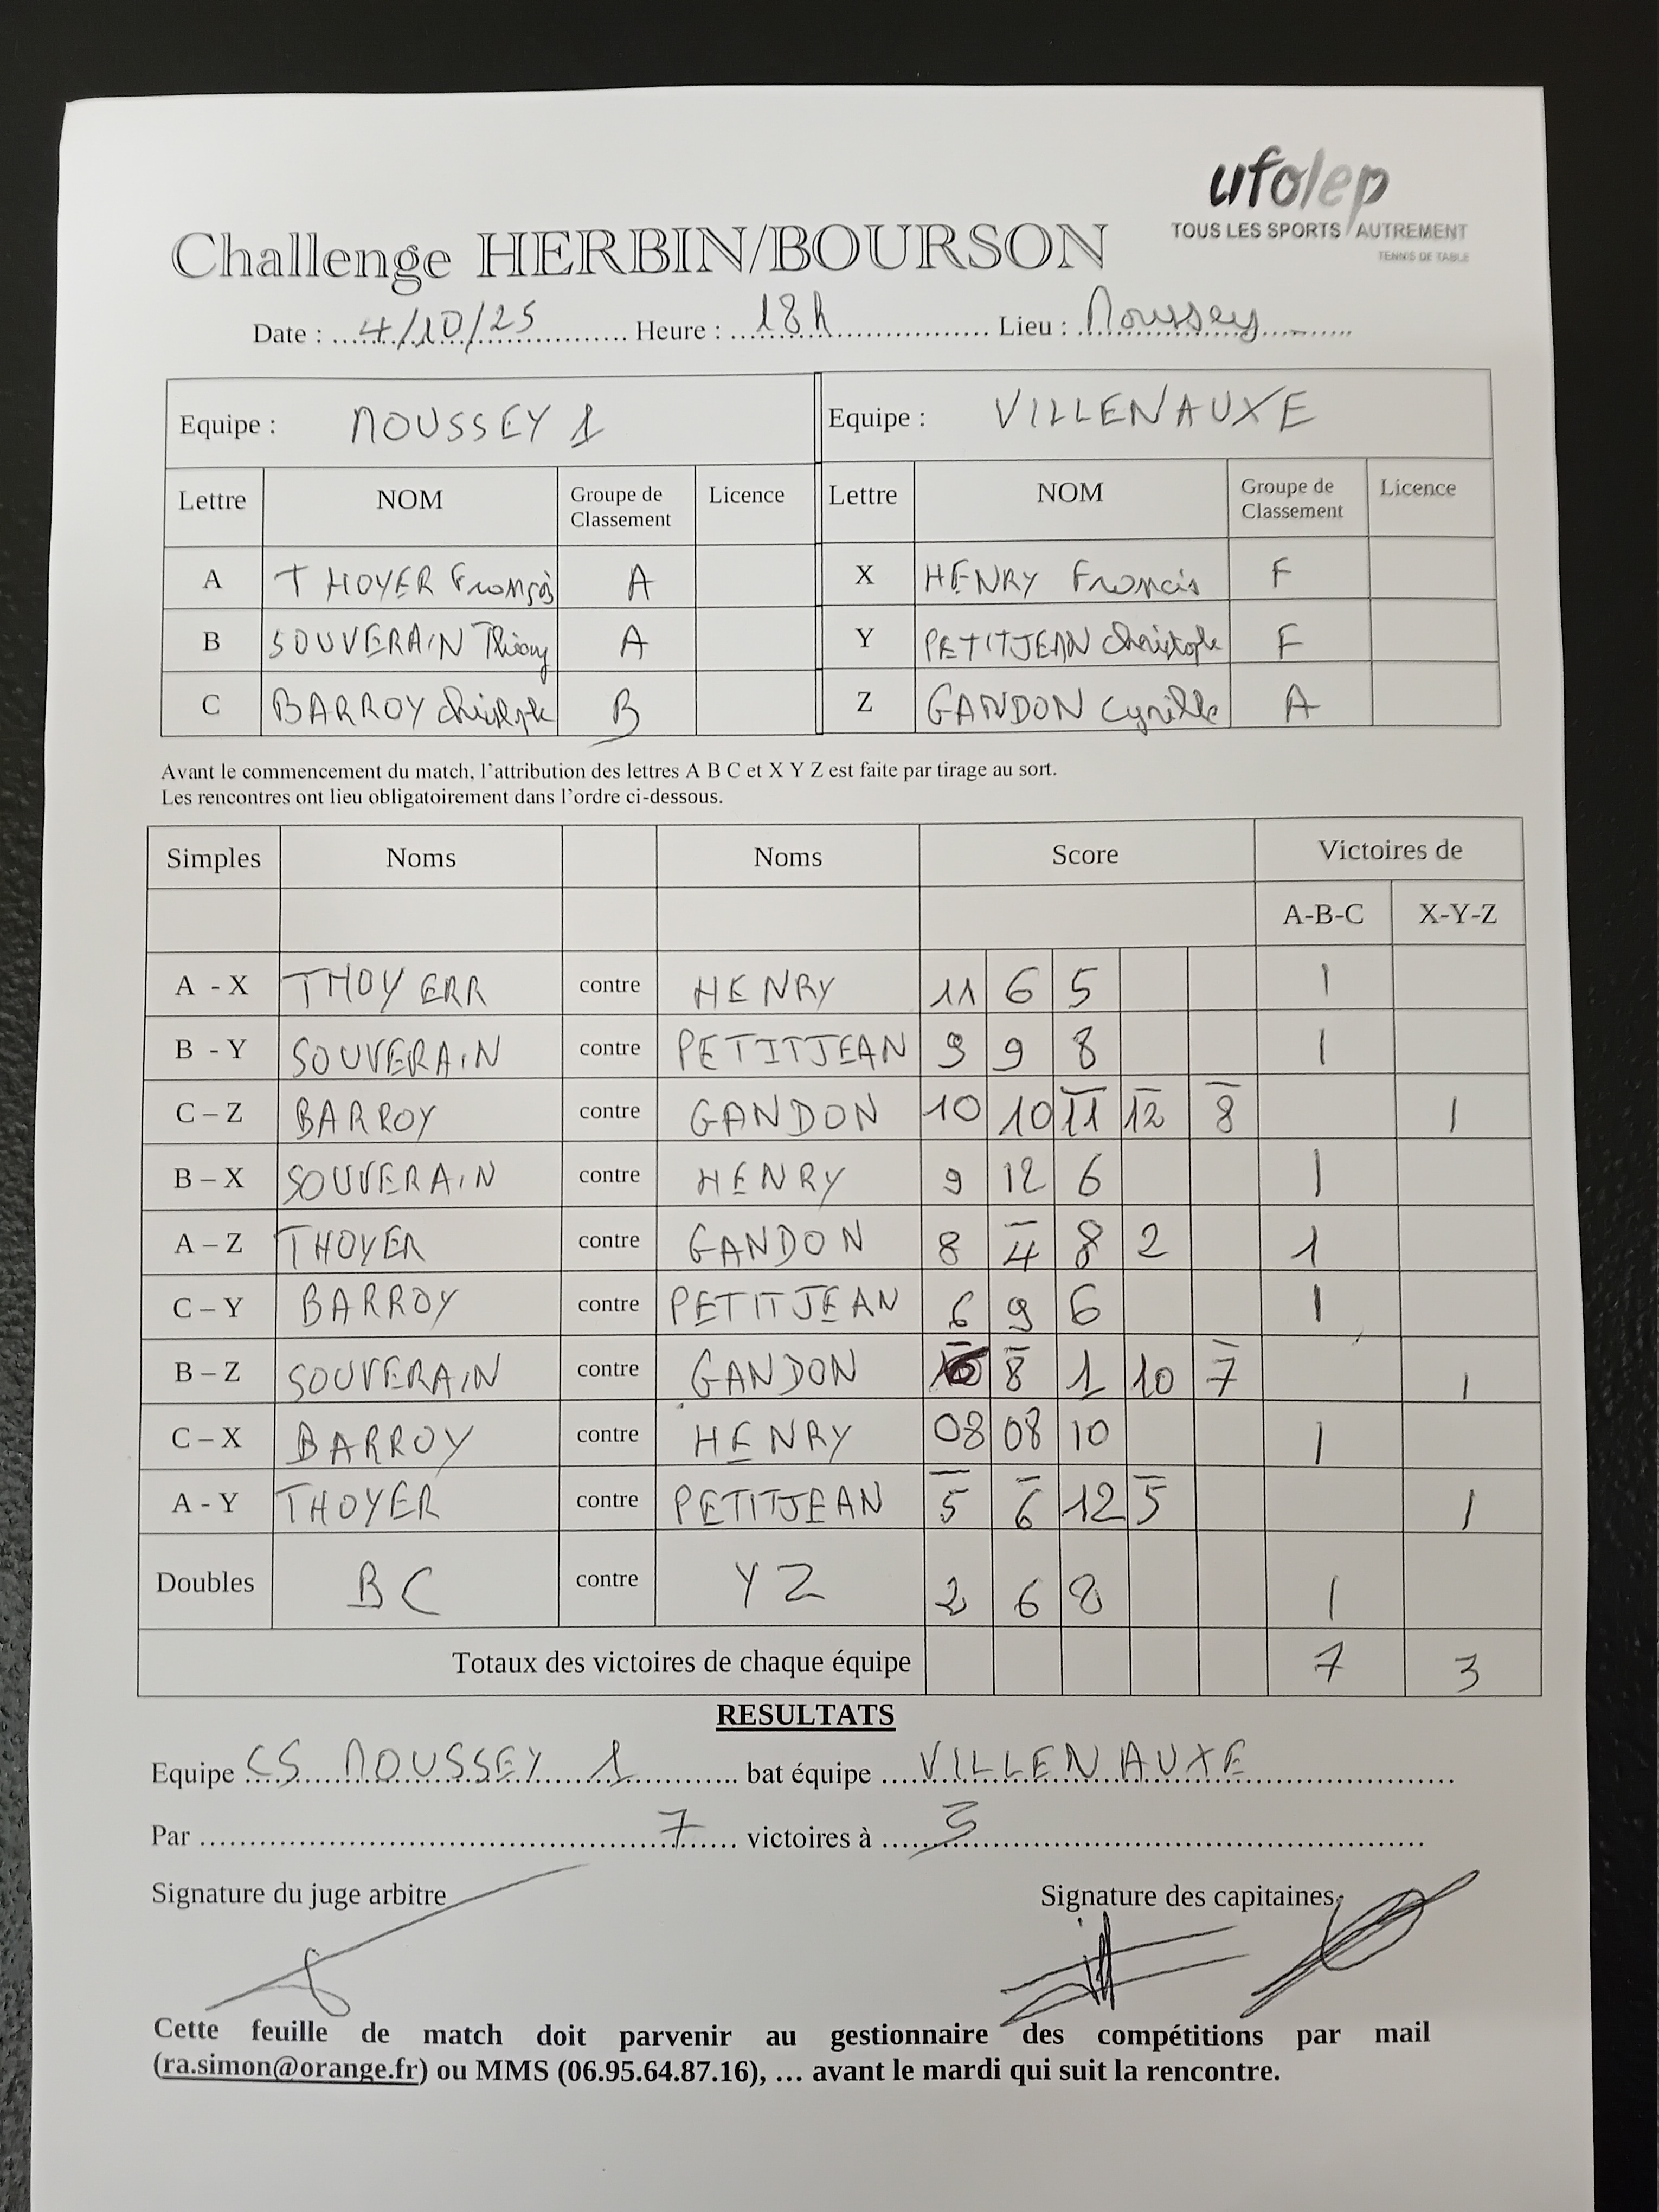 ufolep
TOUS LES SPORTS / AUTREMENT
TENNIS DE TABLE
Challenge HERBIN/BOURSON
Date : 4/10/25 Heure : 18h Lieu : Noussey
Equipe : NOUSSEY 1 Equipe : VILLENAUXE
Lettre NOM Groupe de Classement Licence Lettre NOM Groupe de Classement Licence
A THOYER François A X HENRY Francis F
B SOUVERAIN Thierry A Y PETITJEAN Christophe F
C BARROY Christophe B Z GANDON Cyrille A
Avant le commencement du match, l'attribution des lettres A B C et X Y Z est faite par tirage au sort.
Les rencontres ont lieu obligatoirement dans l'ordre ci-dessous.
Simples Noms Noms Score Victoires de
A-B-C X-Y-Z
A - X THOYERR contre HENRY 11 6 5 1
B - Y SOUVERAIN contre PETITJEAN 9 9 8 1
C – Z BARROY contre GANDON 10 10 -11 -12 -8 1
B – X SOUVERAIN contre HENRY 9 12 6 1
A – Z THOYER contre GANDON 8 -4 8 2 1
C – Y BARROY contre PETITJEAN 6 9 6 1
B – Z SOUVERAIN contre GANDON -8 1 10 -7 1
C – X BARROY contre HENRY 08 08 10 1
A - Y THOYER contre PETITJEAN -5 -6 12 -5 1
Doubles BC contre YZ 2 6 8 1
Totaux des victoires de chaque équipe 7 3
RESULTATS
Equipe CS NOUSSEY 1 bat équipe VILLENAUXE
Par 7 victoires à 3
Signature du juge arbitre Signature des capitaines
Cette feuille de match doit parvenir au gestionnaire des compétitions par mail
(ra.simon@orange.fr) ou MMS (06.95.64.87.16), … avant le mardi qui suit la rencontre.